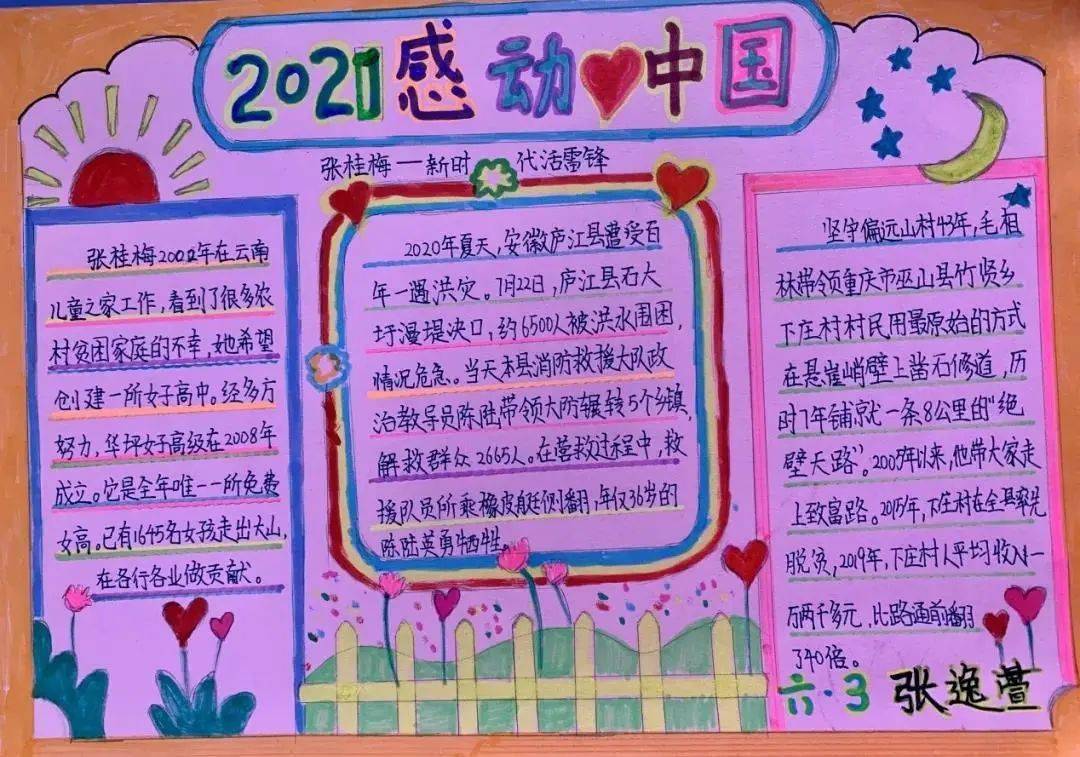 2021感动中国
张桂梅一新时代活雷锋
张桂梅2002年在云南
儿童之家工作，看到了很多农
村贫困家庭的不幸，她希望
创建一所女子高中。经多方
努力，华坪女子高级在2008年
成立。它是全年唯一一所免费
女高。已有1645名女孩走出大山，
在各行各业做贡献。
2020年夏天，安徽庐江县遭受百
年一遇洪灾。7月22日，庐江县石大
圩漫堤决口，约6500人被洪水围困，
情况危急。当天本县消防救援大队政
治教导员陈陆带领大防辗转5个乡镇，
解救群众2665人。在营救过程中，救
援队员所乘橡皮艇侧翻，年仅36岁的
陈陆英勇牺牲。
坚守偏远山村43年，毛相
林带领重庆市巫山县竹贤乡
下庄村村民用最原始的方式
在悬崖峭壁上凿石修道，历
时7年铺就一条8公里的“绝
壁天路”。2005年以来，他带大家走
上致富路。2015年，下庄村在全县率先
脱贫，2019年，下庄村人平均收入一
万两千多元，比路通前翻
了40倍。
六·3 张逸萱